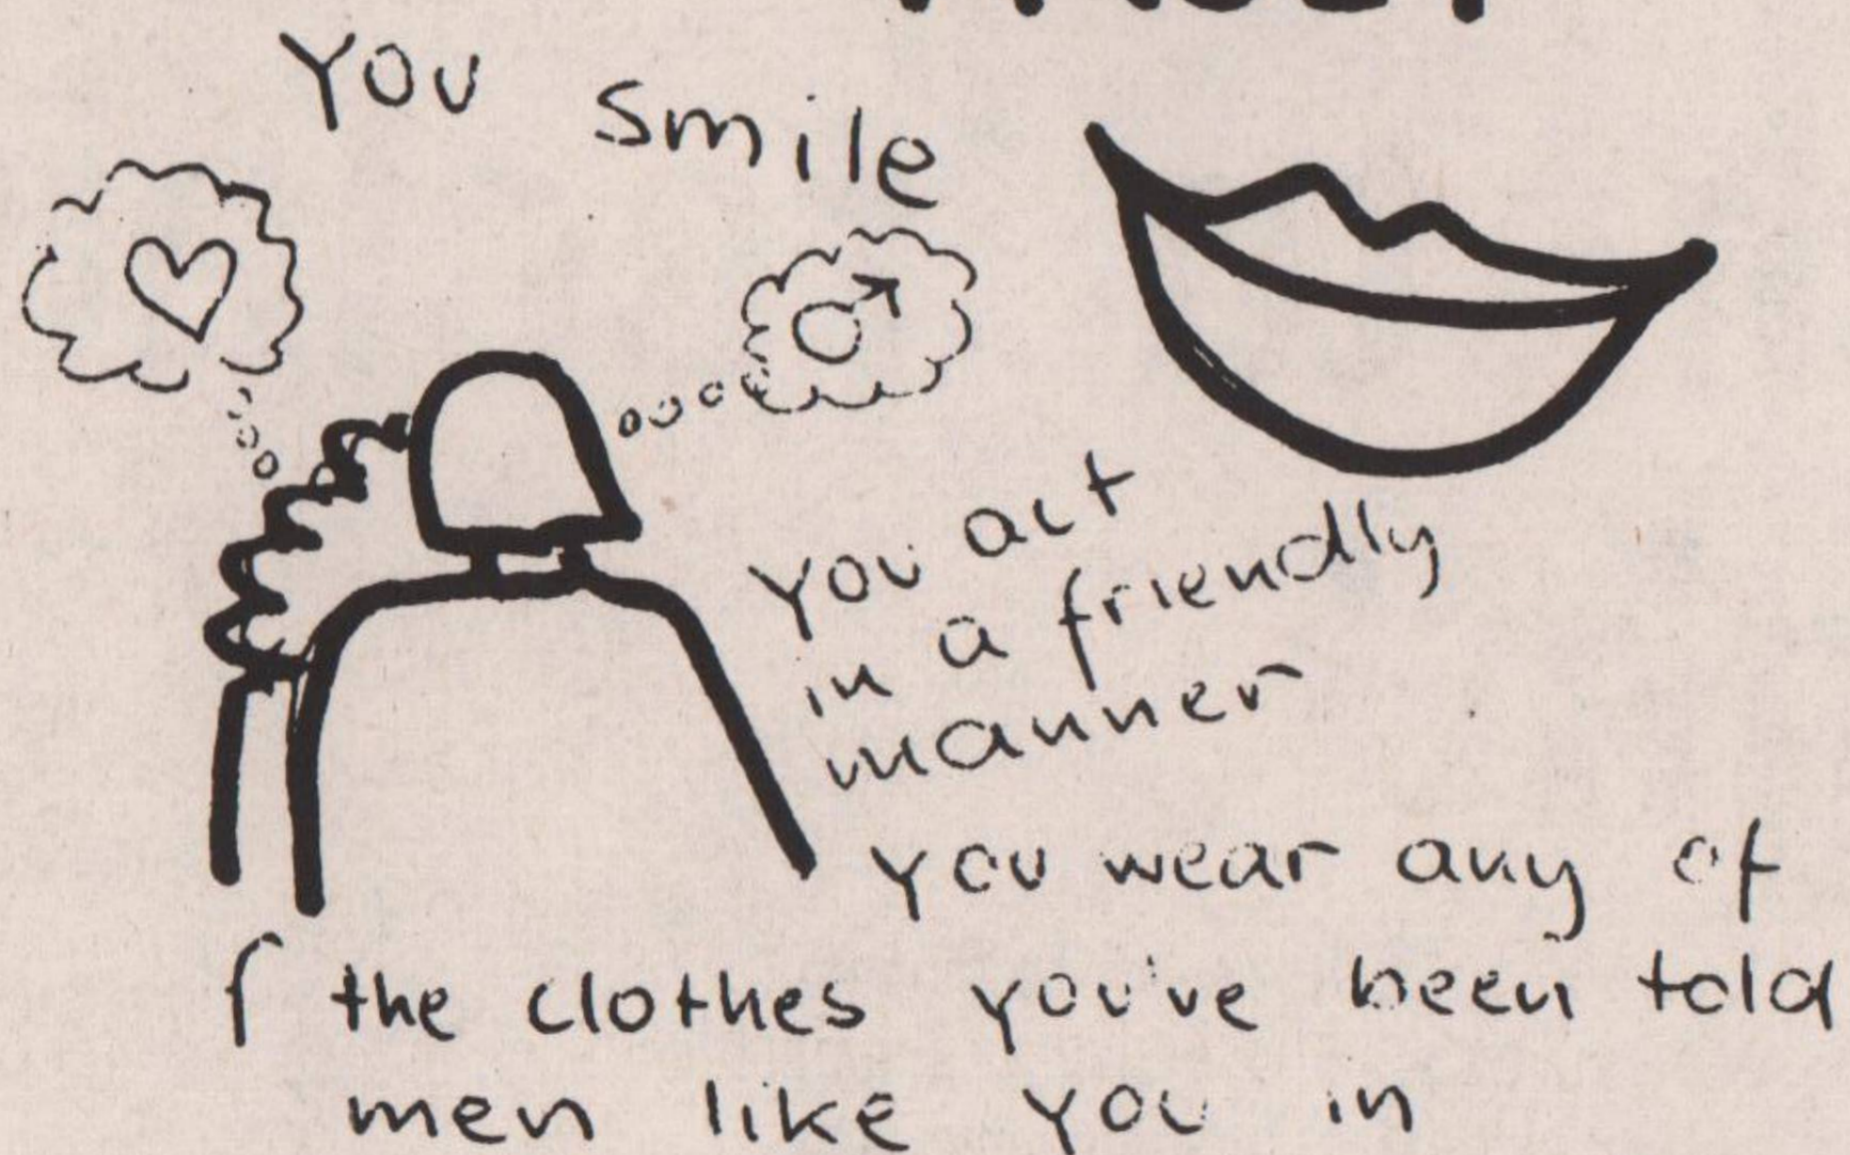 YOU smile
You act
in a friendly
manner
you wear any of
the clothes you've been told
men like you in